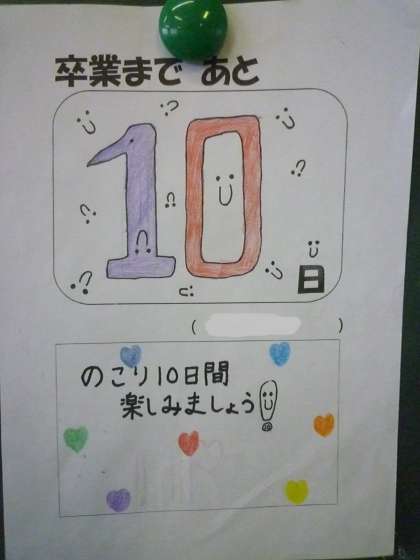 卒業まで あと
10
日
( )
のこり10日間
楽しみましょう!